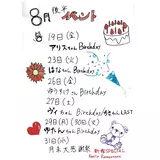 8月後半イベント
19日(金)
アリスちゃんBirthday
23日(火)
はなちゃんBirthday
26日(金)
ゆうすけさんBirthday
27日(土)
ヴィちゃんBirthday/
29日(月)30日(火)
ゆたんちゃんBirthday
31日(水)
月末大感謝祭